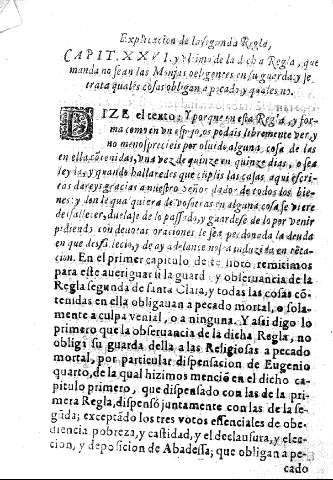 Explicacion de la segunda Regla,
CAPIT. XXVI. y vltimo de la dicha Regla, que
manda no sean las Monjas negligentes en su guarda: y se
trata quales cosas obligan a pecado, y quales no.
DIZE el texto: Y porque en esta Regla, y for-
ma como en vn espejo, os podais libremente ver, y
no menosprecieis por oluido alguna cosa de las
en ella cōtenidas, vna vez de quinze en quinze dias, o sea
leyda: y quando hallaredes que cūplis las cosas aqui escri-
tas dareys gracias a nuestro Señor dador de todos los bie-
nes: y donde qua quiera de vosotras en alguna cosa se viere
desfallecer, duelase de lo passado, y guardese de lo por venir
pidiendo con deuotas oraciones le sea perdonada la deuda
en que desfallecio, y de ay adelante no sea induzida en tēta-
cion. En el primer capitulo de este libro, remitimos
para este aueriguar la guarda, y obseruancia de la
Regla segunda de santa Clara, y todas las cosas cō-
tenidas en ella obligauan a pecado mortal, o sola-
mente a culpa venial, o a ninguna. Y assi digo lo
primero que la obseruancia de la dicha Regla, no
obliga su guarda della a las Religiosas a pecado
mortal, por particular dispensacion de Eugenio
quarto, de la qual hizimos menciō en el dicho ca-
pitulo primero, que dispensado con las de la pri-
mera Regla, dispensó juntamente con las de la se-
gūda; exceptādo los tres votos essenciales de obe-
diencia pobreza, y castidad, y el declausura, y elec-
cion, y deposicion de Abadessa; que obligan a pe-
cado